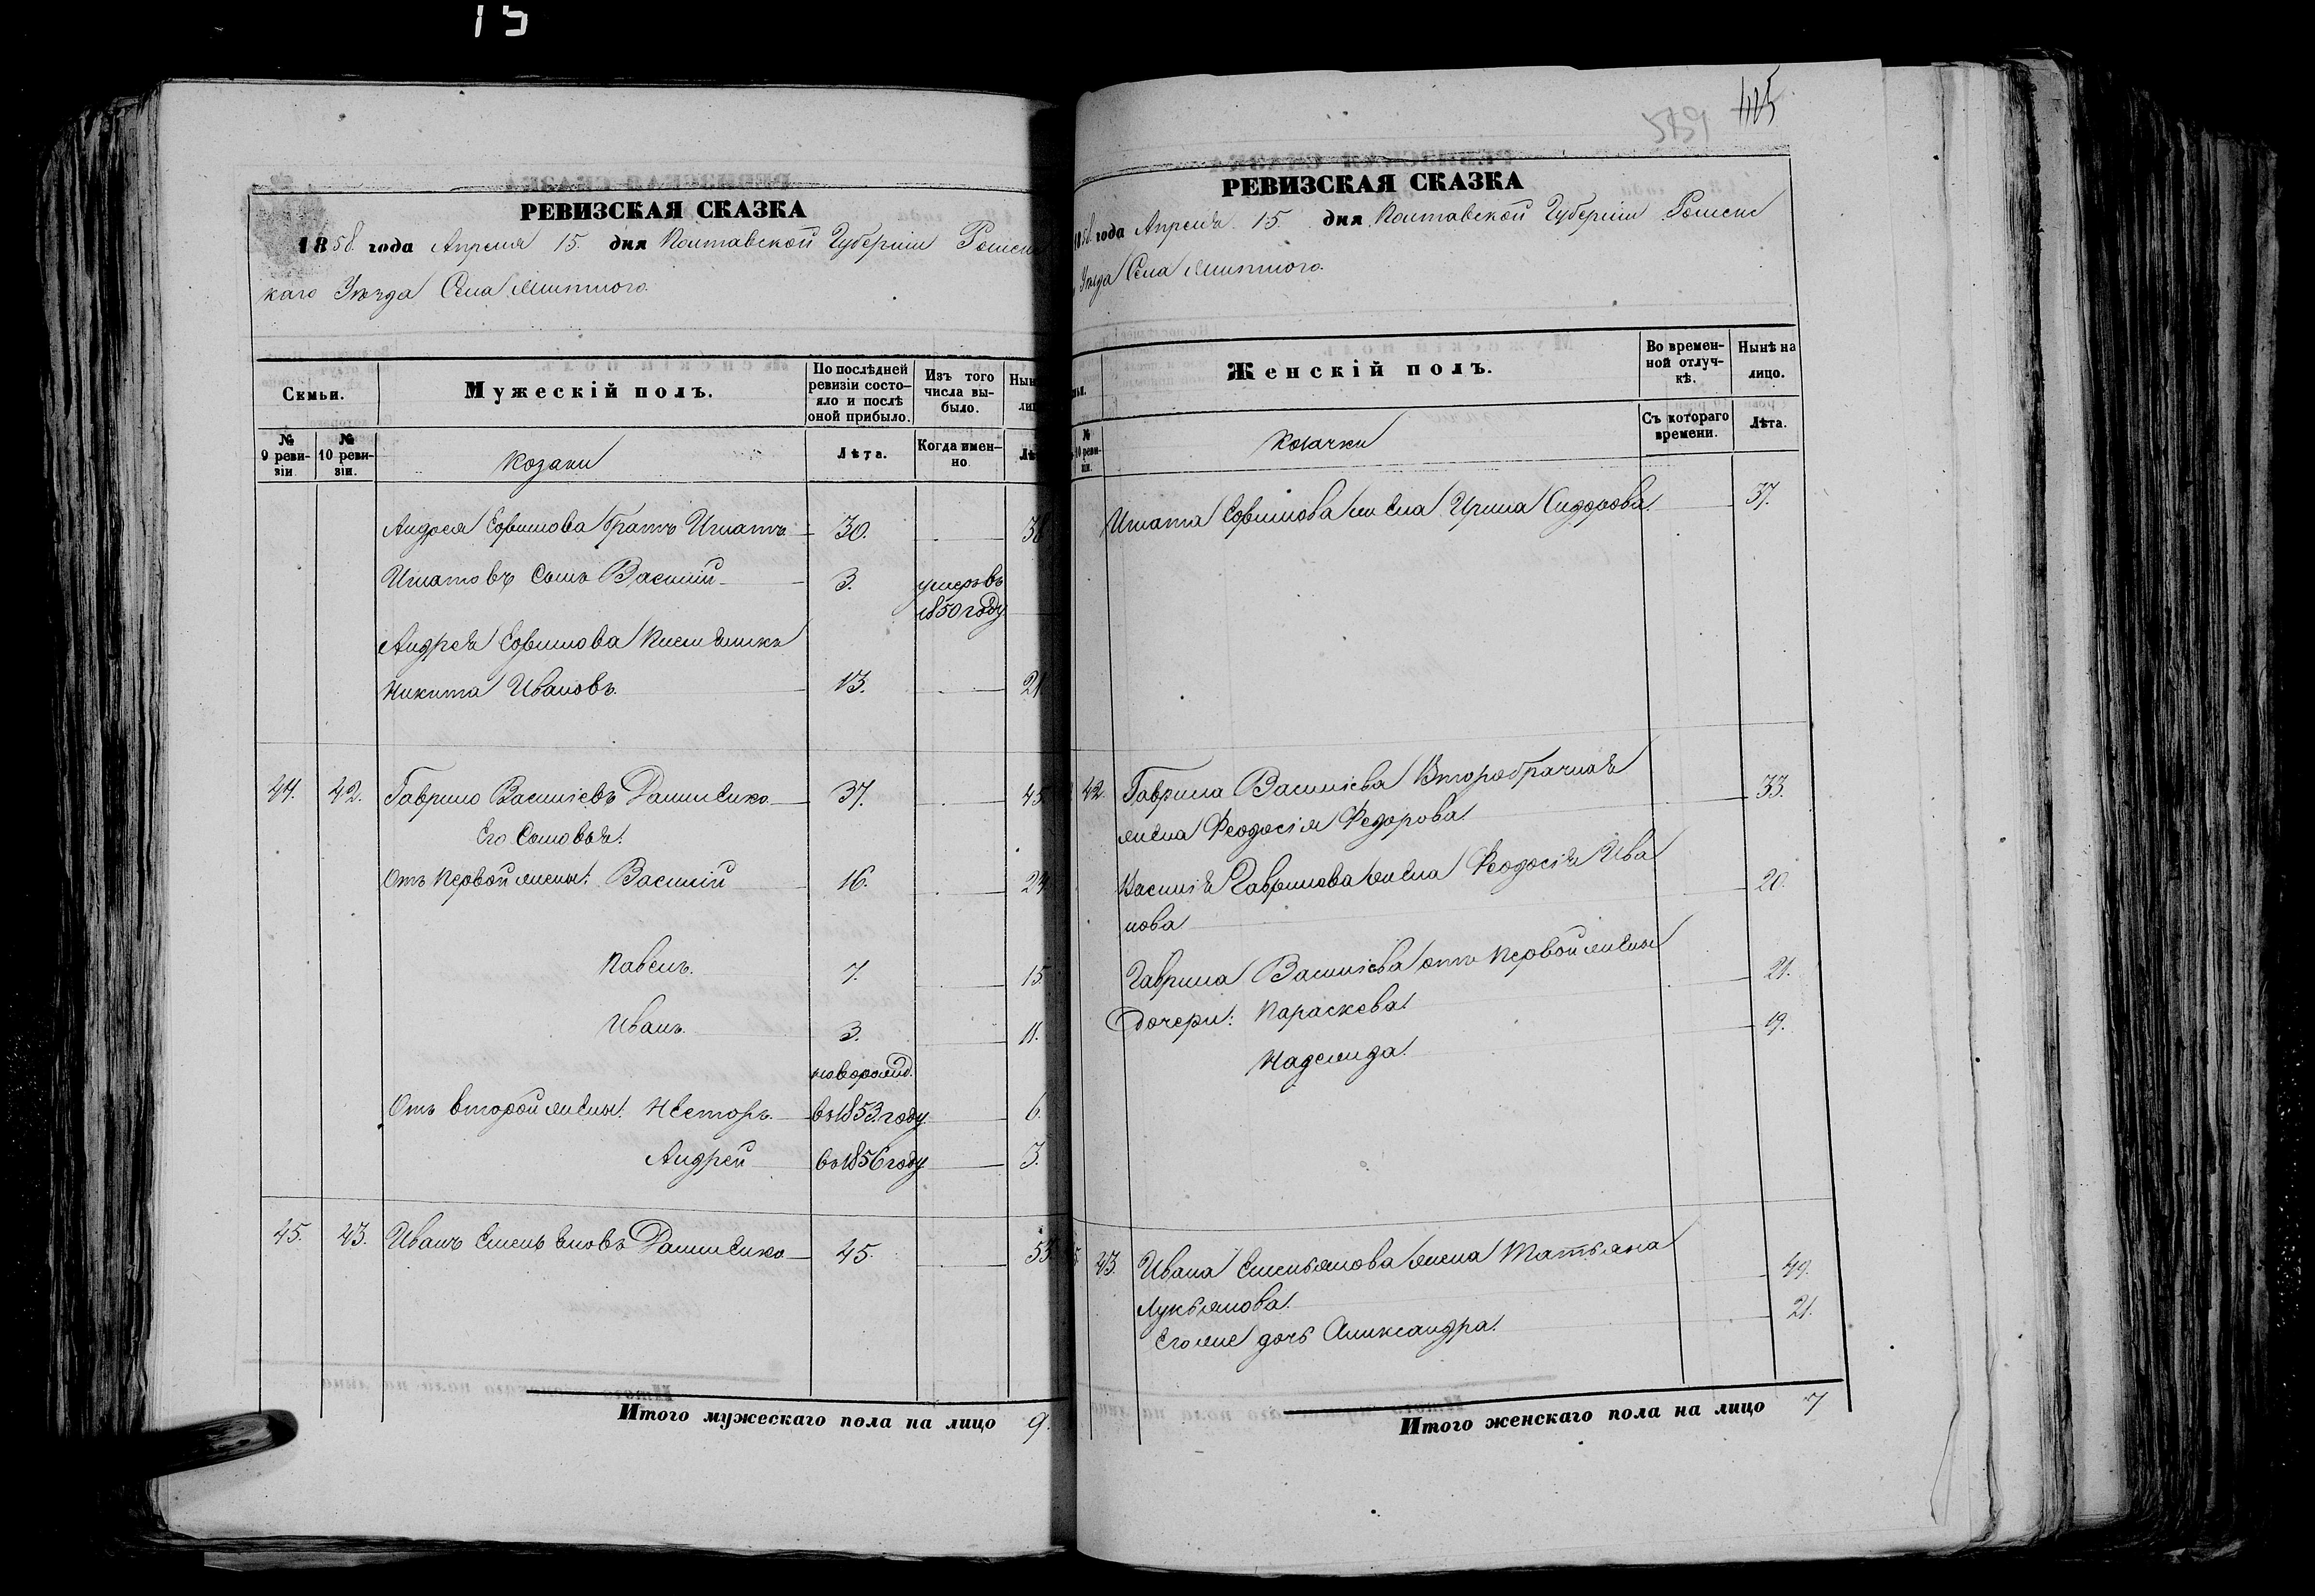 15
РЕВИЗСКАЯ СКАЗКА
1858 года Апреля 15. дня Полтавской Губернiи Роменс
каго Уѣзда Села Липового.
Семьи.
Мужескiй полъ.
По послѣдней ревизiи состояло и послѣ оной прибыло.
Изъ того числа выбыло.
№ 9 ревизiи
№ 10 ревизiи.
Козаки
Лѣта.
Когда именно
Андрея Ефимова братъ Игнатъ 30. 38
Игнатовъ Сынъ Василiй 3. умеръ въ
1850 году
Андрея Ефимова Племянникъ
Никита Ивановъ. 13. 21
44. 42. Гаврило Васильевъ Даниленко 37. 45
Его Сыновья:
Отъ первой жены: Василiй 16. 24
Павелъ. 7. 15.
Иванъ. 3. 11.
новорожд.
Отъ второй жены: Несторъ. въ 1853 году. 6.
Андрей въ 1856 году. 3.
45. 43. Иванъ Емельяновъ Даниленко 45. 53.
Итого мужескаго пола на лицо 9.
519
РЕВИЗСКАЯ СКАЗКА
1858 года Апреля 15. дня Полтавской Губернiи Роменс
Уѣзда Села Липового.
Женскiй полъ.
Во временной отлучкѣ.
Нынѣ на лицо.
№ 10 ревизiи.
Козачки
Съ котораго времени.
Лѣта.
Игната Ефимова жена Ирина Сидорова. 37.
42. Гаврила Васильева Второбрачная 33.
жена Феодосiя Федорова.
Василiя Гаврилова жена Феодосiя Ива 20.
нова
Гаврила Васильева отъ первой жены 21.
Дочери: Параскева. 19.
Надежда.
43. Ивана Емельянова жена Татьяна 49.
Лукьянова.
Его же дочь Александра. 21.
Итого женскаго пола на лицо 7